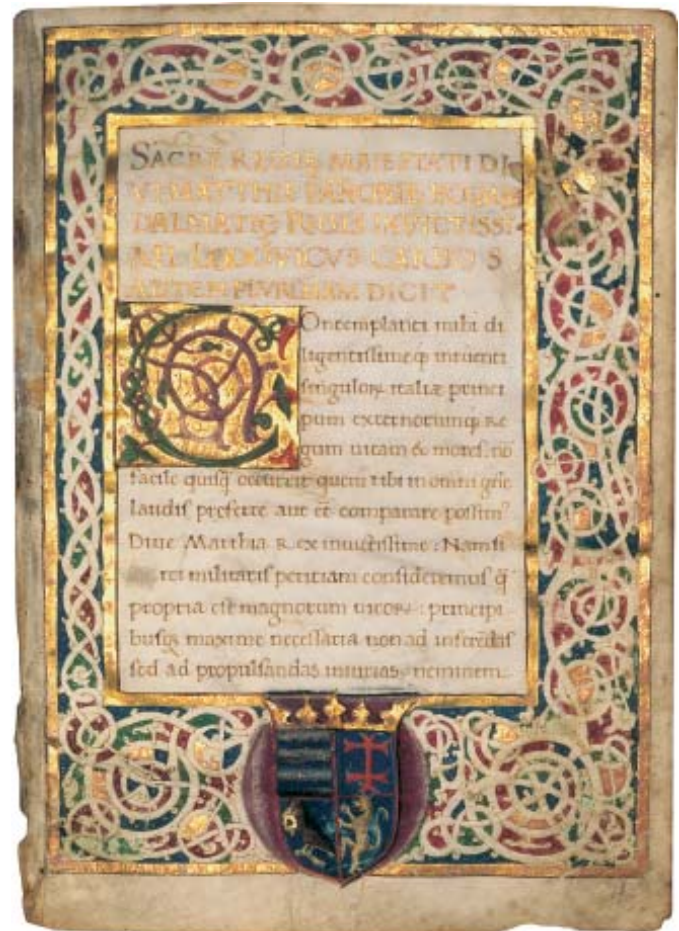 SACRE REGIE MAIESTATI DI
VI MATTHIE
DALMATIĘ INVICTISSI
LODOVICVS CARBO S
DICIT
COntemplanti mihi di
ligentissimeq
singuloꝝ italiæ princi
pum externorumq Re
gum uitam & mores. nõ
facile quisq̃ occurrit quem tibi in omni
laudis preferre aut comparare possim
Diue Matthia Rex inuictissime: Nam si
rei militaris peritiam consideremus q̃
propria est magnorum uiroꝝ: principi
busq maxime necessaria non ad inferẽdas
sed ad propulsandas iniurias, neminem